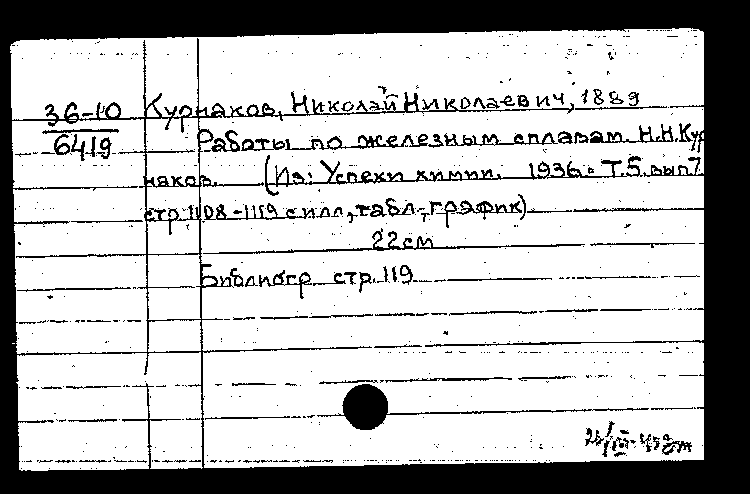 36-10
6419
Курнаков, Николай Николаевич, 1889
Работы по железным сплавам. Н.Н.Кур
наков. (Из: Успехи химии. 1936. Т.5. вып7
стр.1108-1119 с илл., табл., график)
22см
Библиогр. стр.119